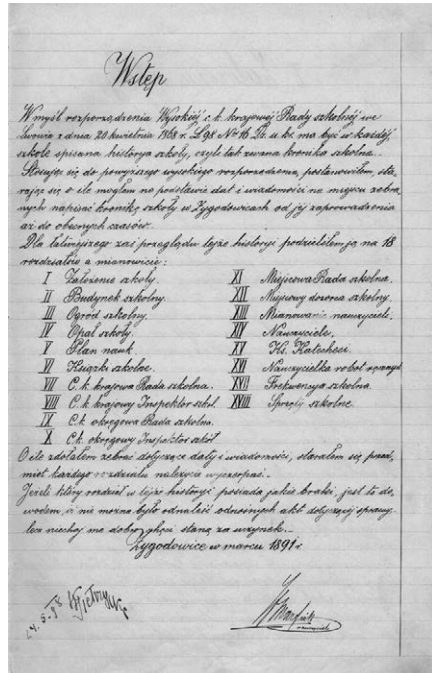 Wstęp
W myśl rozporządzenia Wysokiéj c. k. krajowéj Rady szkolnéj we
Lwowie z dnia 20 kwietnia 1868 r. L 98 No 16 Dz. u. kr. ma być w każdéj
szkole spisana historya szkoły, czyli tak zwana kronika szkolna.
Stosując się do powyższego wysokiego rozporządzenia, postanowiłem, sta-
rając się o ile mogłem na podstawie dat i wiadomości na miejscu zebra-
nych napisać kronikę szkoły w Zygodowicach od jéj zaprowadzenia
aż do obecnych czasów.
Dla łatwiejszego zaś przeglądu tejże historyi podzieliłem ją na 18
rozdziałów a mianowicie:
I Założenie szkoły.
II Budynek szkolny.
III Ogród szkolny.
IV Opał szkoły.
V Plan nauk.
VI Książki szkolne.
VII C. k. krajowa Rada szkolna.
VIII C. k. krajowy Inspektor szkol.
IX C. k. okręgowa Rada szkolna.
X C. k. okręgowy Inspektor szkół
XI Miejscowa Rada szkolna.
XII Miejscowy dozorca szkolny.
XIII Mianowanie nauczyciela.
XIV Nauczyciele.
XV Ks. Katecheci.
XVI Nauczycielka robót ręcznych
XVII Frekwencya szkolna
XVIII Sprzęty szkolne.
O ile zdołałem zebrać dotyczące daty i wiadomości, starałem się przed-
miot każdego rozdziału należycie wyczerpać.
Jeżeli który rozdział w tejże historyi posiada jakie braki, jest to do-
wodem, iż nie można było odnaleść odnośnych akt dotyczącéj sprawy,
lecz niechaj me dobre chęci staną za uczynek.
Zygodowice w marcu 1891 r.
24.5.98